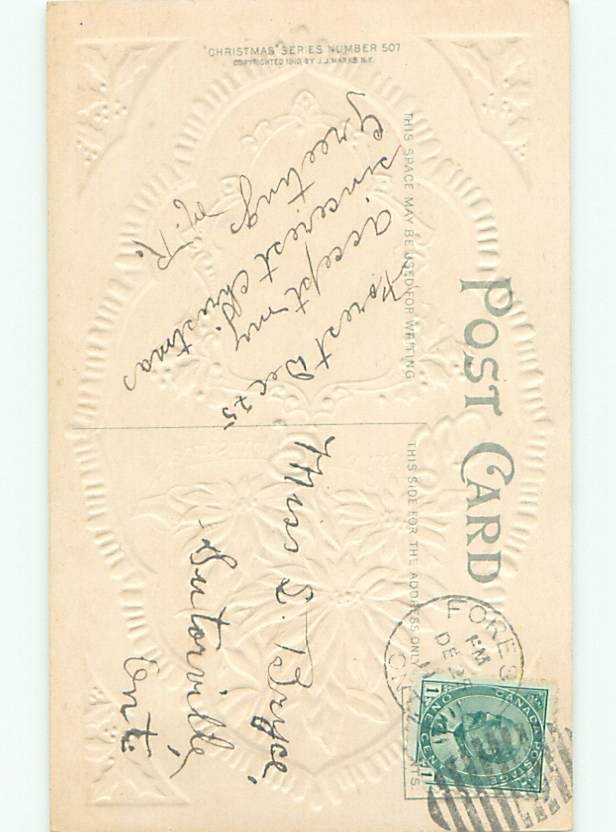 "CHRISTMAS" SERIES NUMBER 507
COPYRIGHTED 1910 BY J.J. MARKS N.Y.
POST CARD
THIS SPACE MAY BE USED FOR WRITING
THIS SIDE FOR THE ADDRESS ONLY
Forest Dec 25
accept my
sincerest christmas
Greetings
M. R.
Miss L. Bryce
Sutorville
Ont.
FOREST
PM
DE 25
ONT
CANADA POSTAGE
1 ONE CENT 1